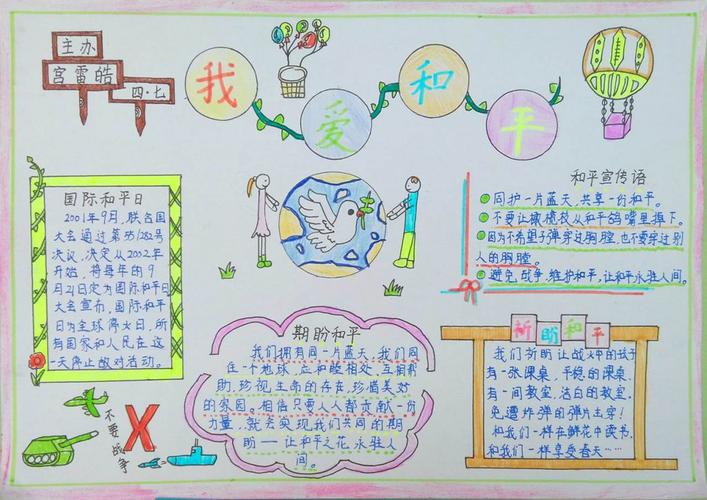 主办
宫雷皓
四·七
我爱和平
国际和平日
2001年9月,联合国
大会通过第55/282号
决议,决定从2002年
开始,将每年的9
月21日定为国际和平日
大会宣布,国际和平
日为全球停火日,所
有国家和人民在这
一天停止敌对活动。
和平宣传语
同护一片蓝天,共享一份和平。
不要让橄榄枝从和平鸽嘴里掉下。
因为不希望子弹穿过胸膛,也不要穿过别
人的胸膛。
避免战争,维护和平,让和平永驻人间。
期盼和平
我们拥有同一片蓝天,我们同
住一个地球,应和睦相处,互相帮
助,珍视生命的存在,珍惜美好
的家园。相信只要人人都贡献一份
力量,就去实现我们共同的期
盼——让和平之花永驻人
间。
祈盼和平
我们祈盼让战火中的孩子
有一张课桌,平稳的课桌.
有一间教室,洁白的教室.
免遭炸弹的弹片击穿!
和我们一样在鲜花中读书.
和我们一样享受春天……
不要战争